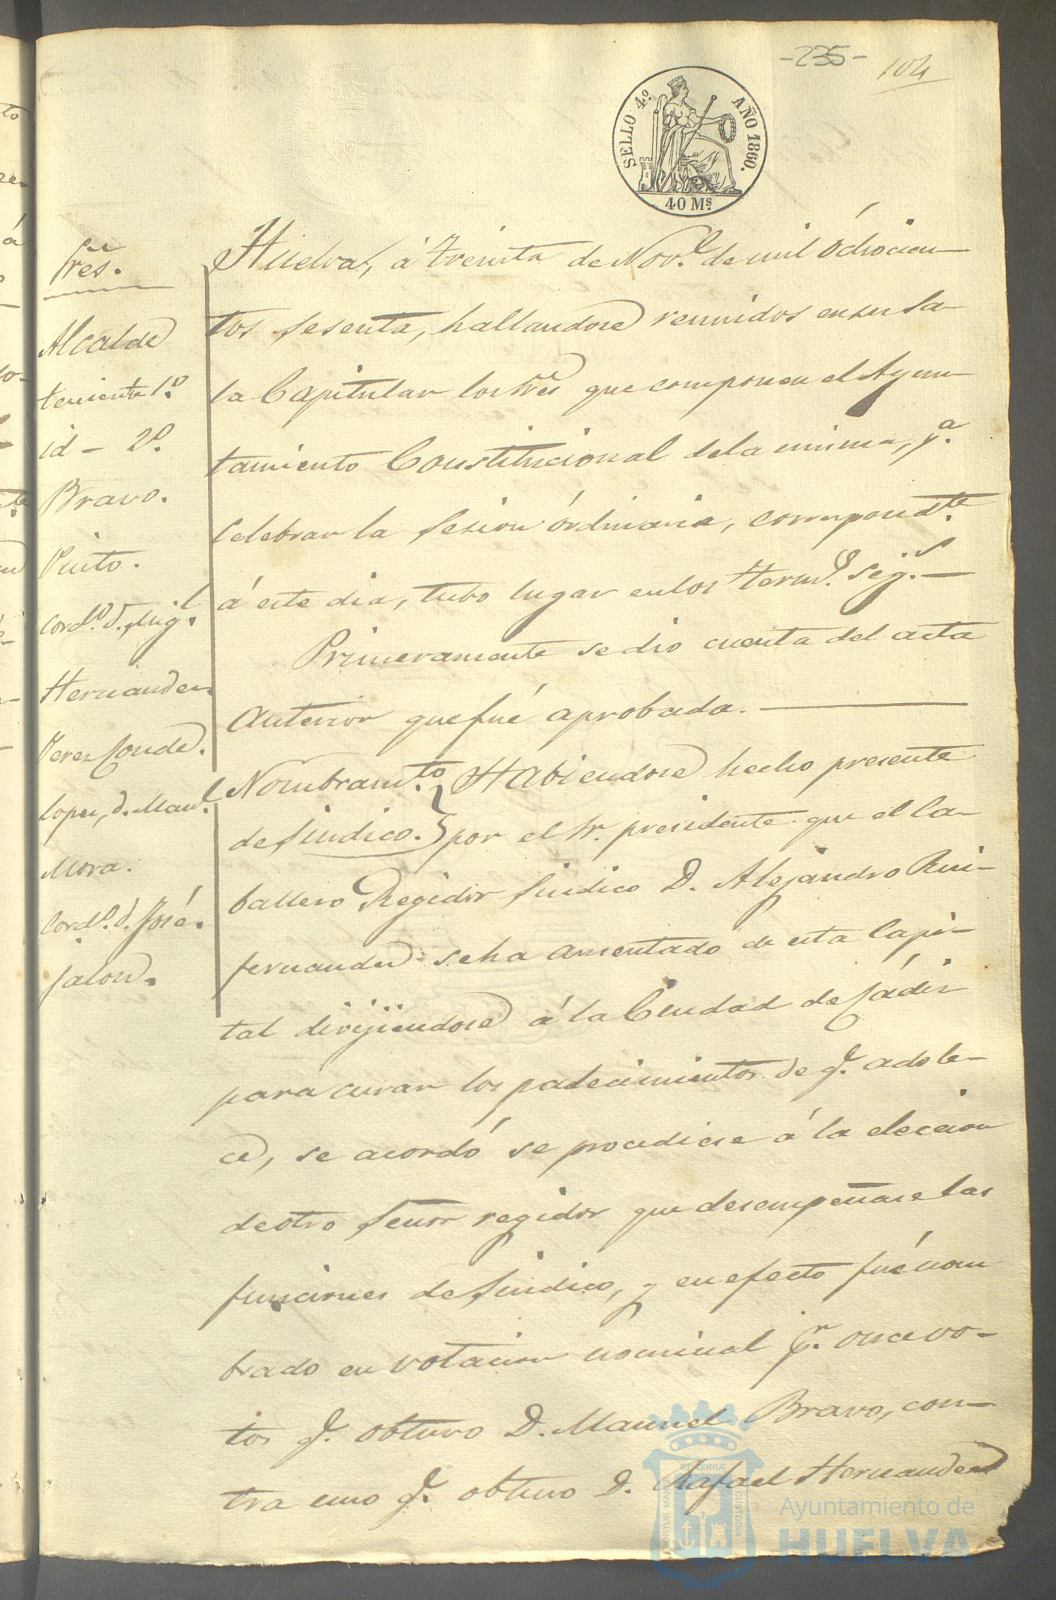 -235-
104
SELLO 4.º AÑO 1860.
40 Ms.
Sres.
Alcalde
teniente 1.º
id - 2.º
Bravo.
Pinto.
Cord.º d. Mig.l
Hernandez
Perez Conde.
Lopez, d. Man.l
Mora.
Cord.º d. José.
Jalon.
Huelva, á treinta de Nov.e de mil óchocien-
tos sesenta, hallandose reunidos en su Sa-
la Capitular los Sres que componen el Ayun-
tamiento Constitucional de la misma, p.a
Celebrar la Sesion órdinaria, correspond.te
á este dia, tubo lugar en los term.s sig.s —
Primeramente se dio cuenta del acta
Anterior que fué aprobada. —
Nombram.to Habiendose hecho presente
de Sindico. por el Sr. presidente que el Ca-
ballero Regidor Sindico D. Alejandro Rui-
fernandez se ha ausentado de esta Capi-
tal dirijiendose á la Ciudad de Cádiz
para curar los padecimientos de q.e adole-
ce, se acordó se procediese á la eleccion
de otro Señor regidor que desempeñase las
funciones de Sindico, y en efecto fué nom
brado en votacion nominal p.r once vo-
tos q.e obtuvo D. Manuel Bravo, con-
tra uno q.e obtuvo D. Rafael Hernandez
Ayuntamiento de
HUELVA